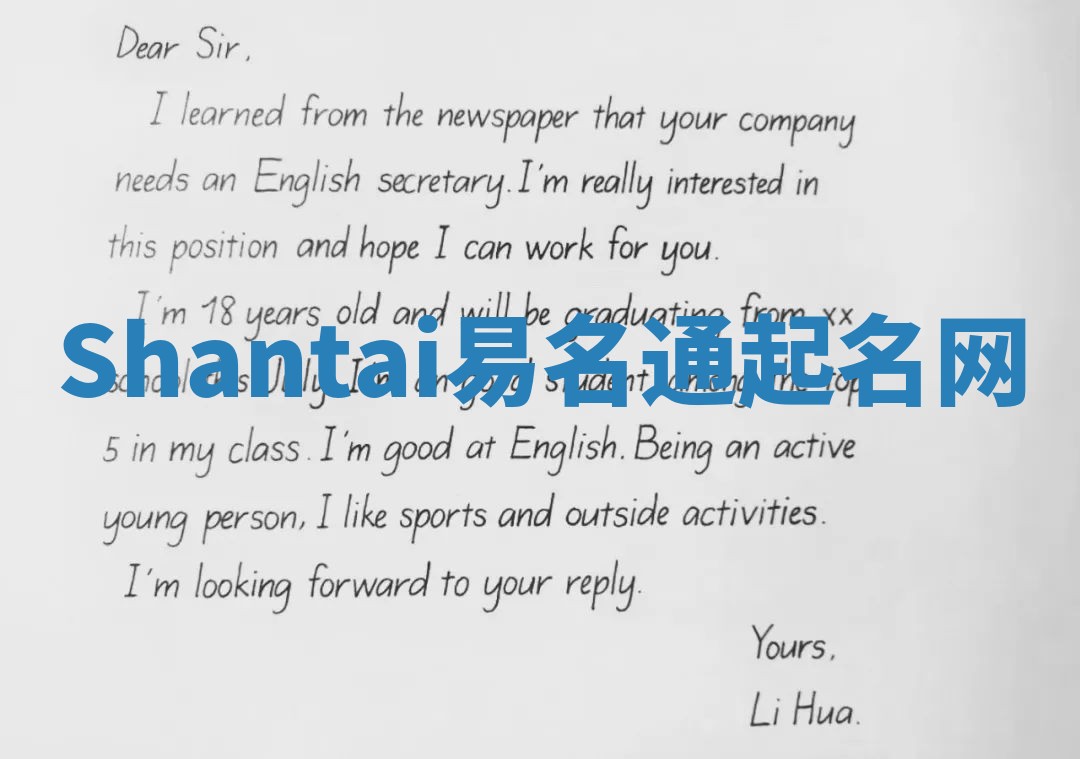 Dear Sir,
I learned from the newspaper that your company
needs an English secretary. I'm really interested in
this position and hope I can work for you.
I'm 18 years old and will be graduating from xx
Shantai易名通起名网
school this July. I'm student among the top
5 in my class. I'm good at English. Being an active
young person, I like sports and outside activities.
I'm looking forward to your reply.
Yours,
Li Hua.